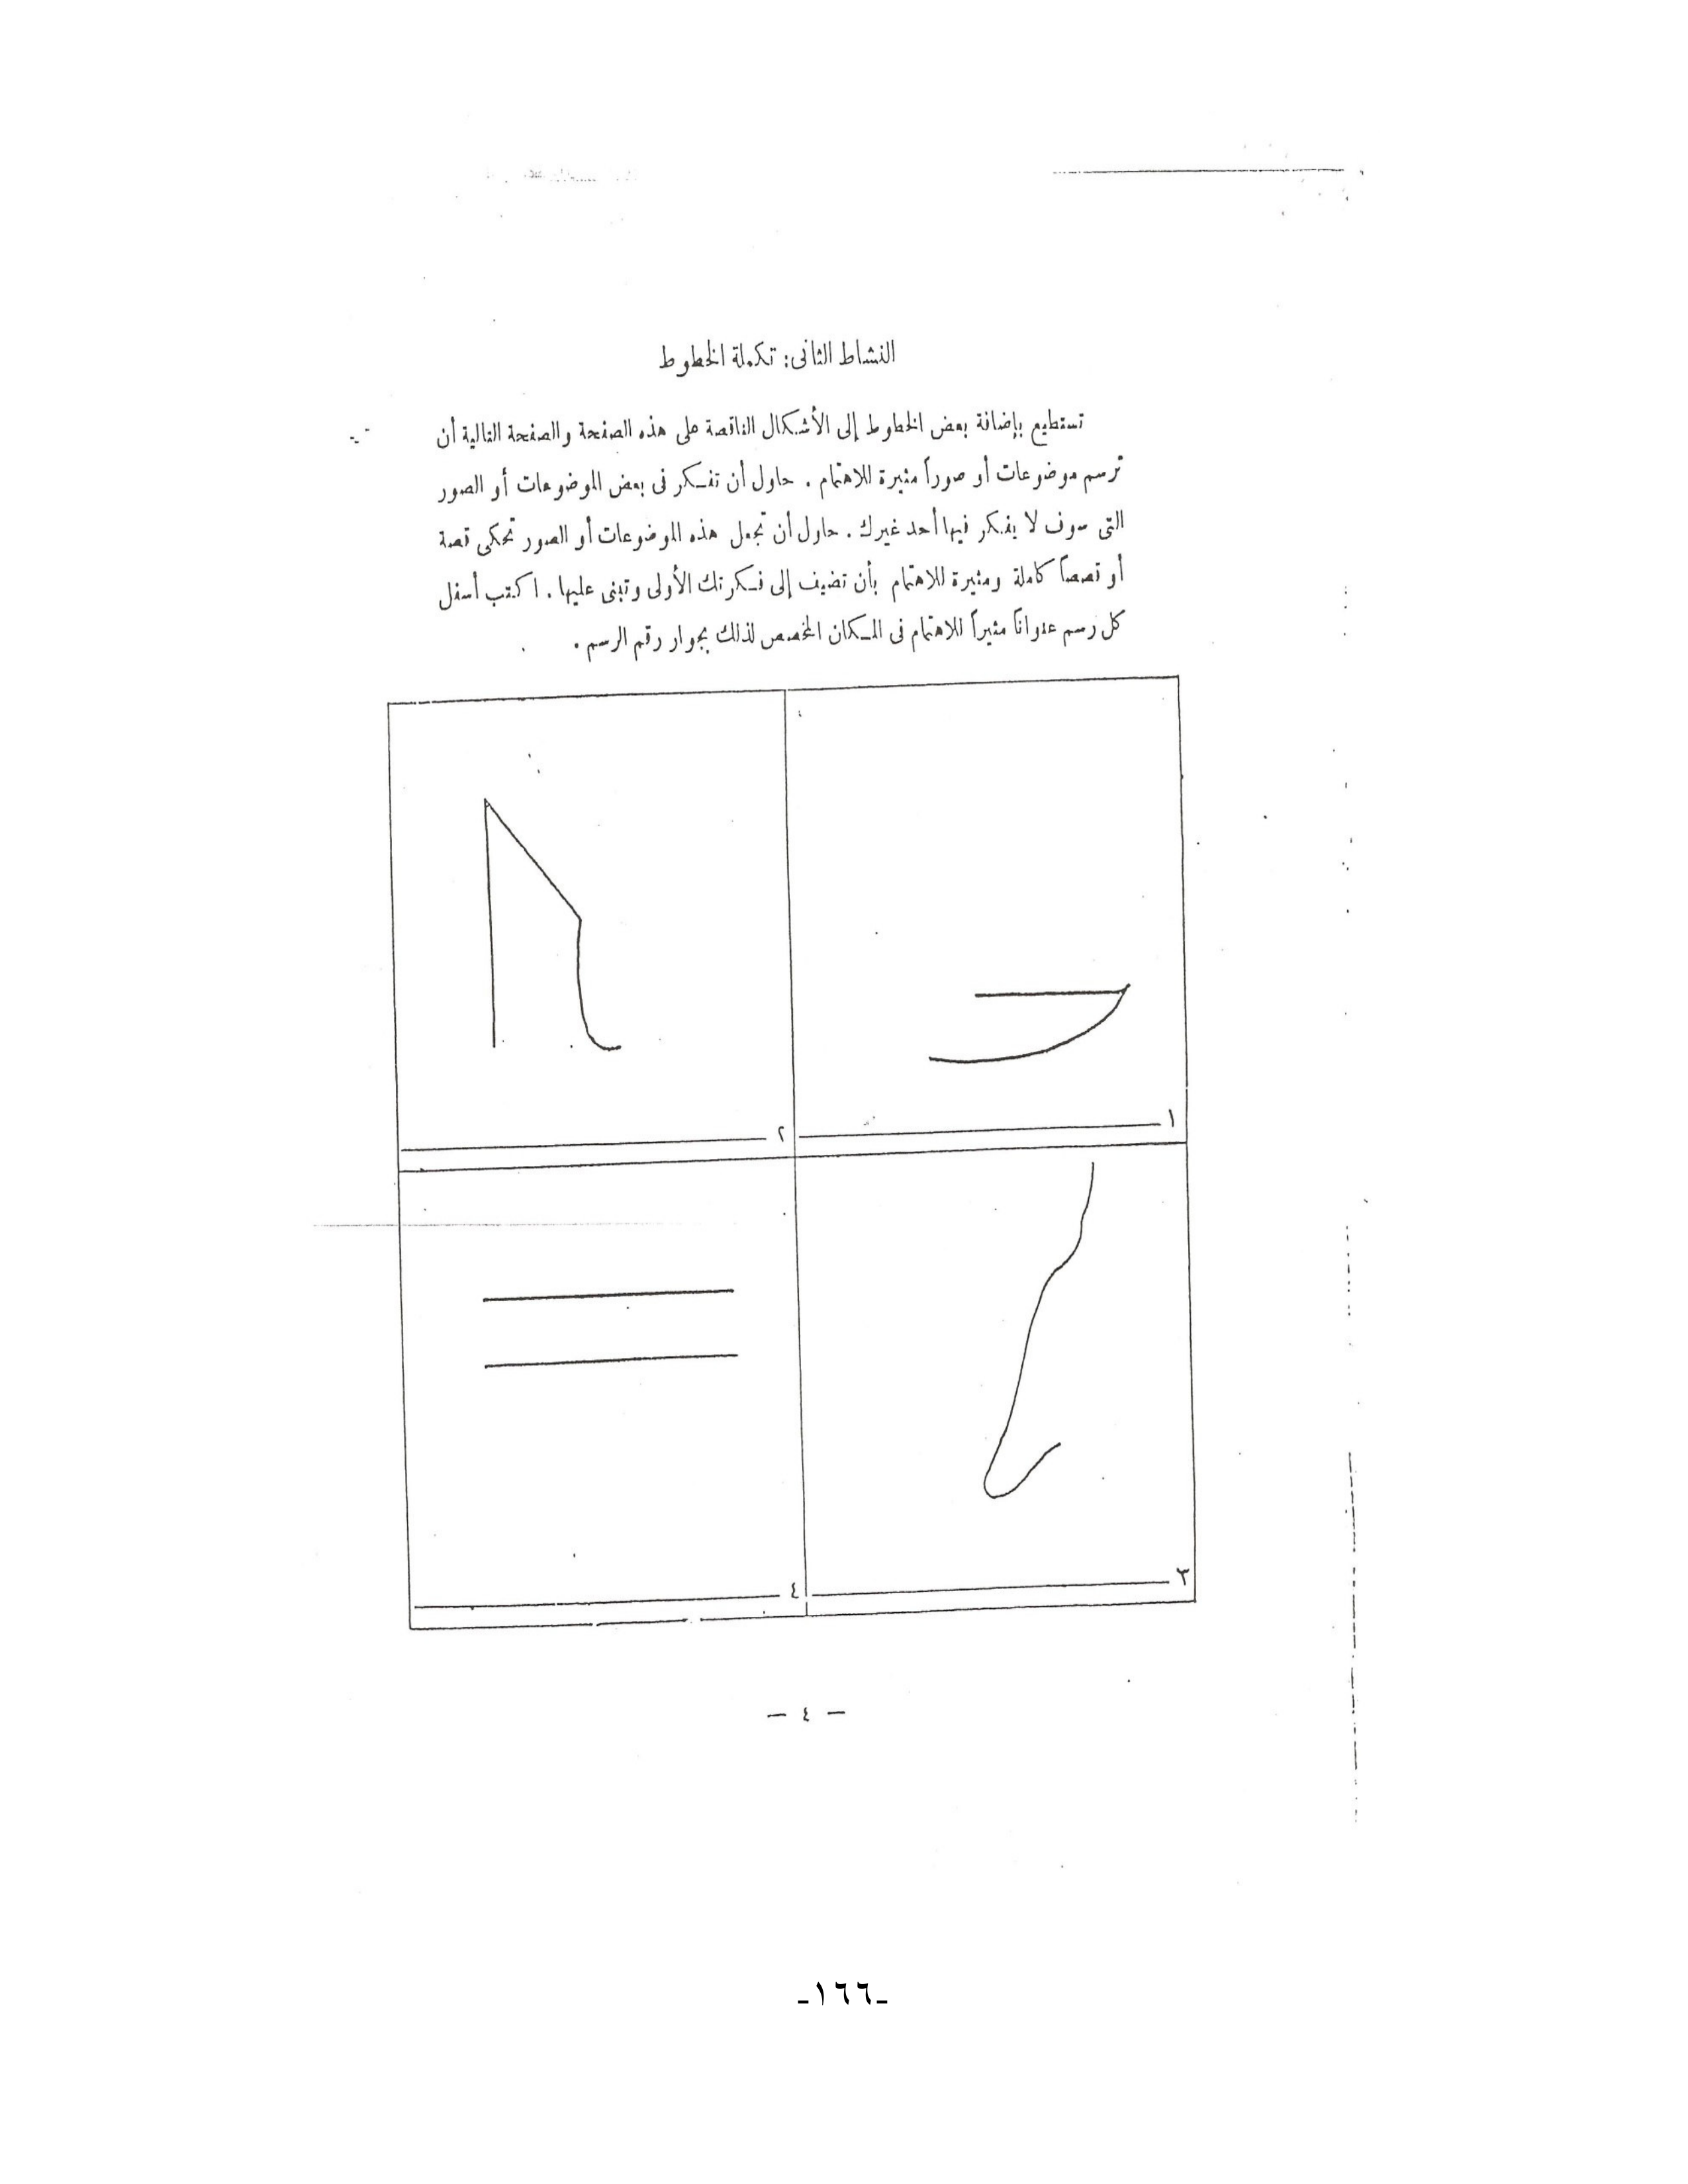 النشاط الثانى: تكملة الخطوط
تستطيع بإضافة بعض الخطوط إلى الأشكال الناقصة على هذه الصفحة والصفحة التالية أن
ترسم موضوعات أو صوراً مثيرة للاهتمام . حاول أن تفكر فى بعض الموضوعات أو الصور
التى سوف لا يفكر فيها أحد غيرك . حاول أن تجعل هذه الموضوعات أو الصور تحكى قصة
أو قصصاً كاملة ومثيرة للاهتمام بأن تضيف إلى فكرتك الأولى وتبنى عليها . اكتب أسفل
كل رسم عنواناً مثيراً للاهتمام فى المكان المخصص لذلك بجوار رقم الرسم .
١
٢
٣
٤
— ٤ —
-١٦٦-